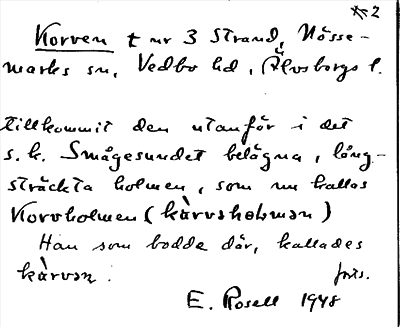 ※ 2
Korven t nr 3 Strand, Nösse-
marks sn, Vedbo hd, Älvsborgs l.
tillkommit den utanför i det
s. k. Smågesundet belägna, lång-
sträckta holmen, som nu kallas
Korvholmen (kàrvshobmən)
Han som bodde där, kallades
kàrvən.
E. Rosell 1948